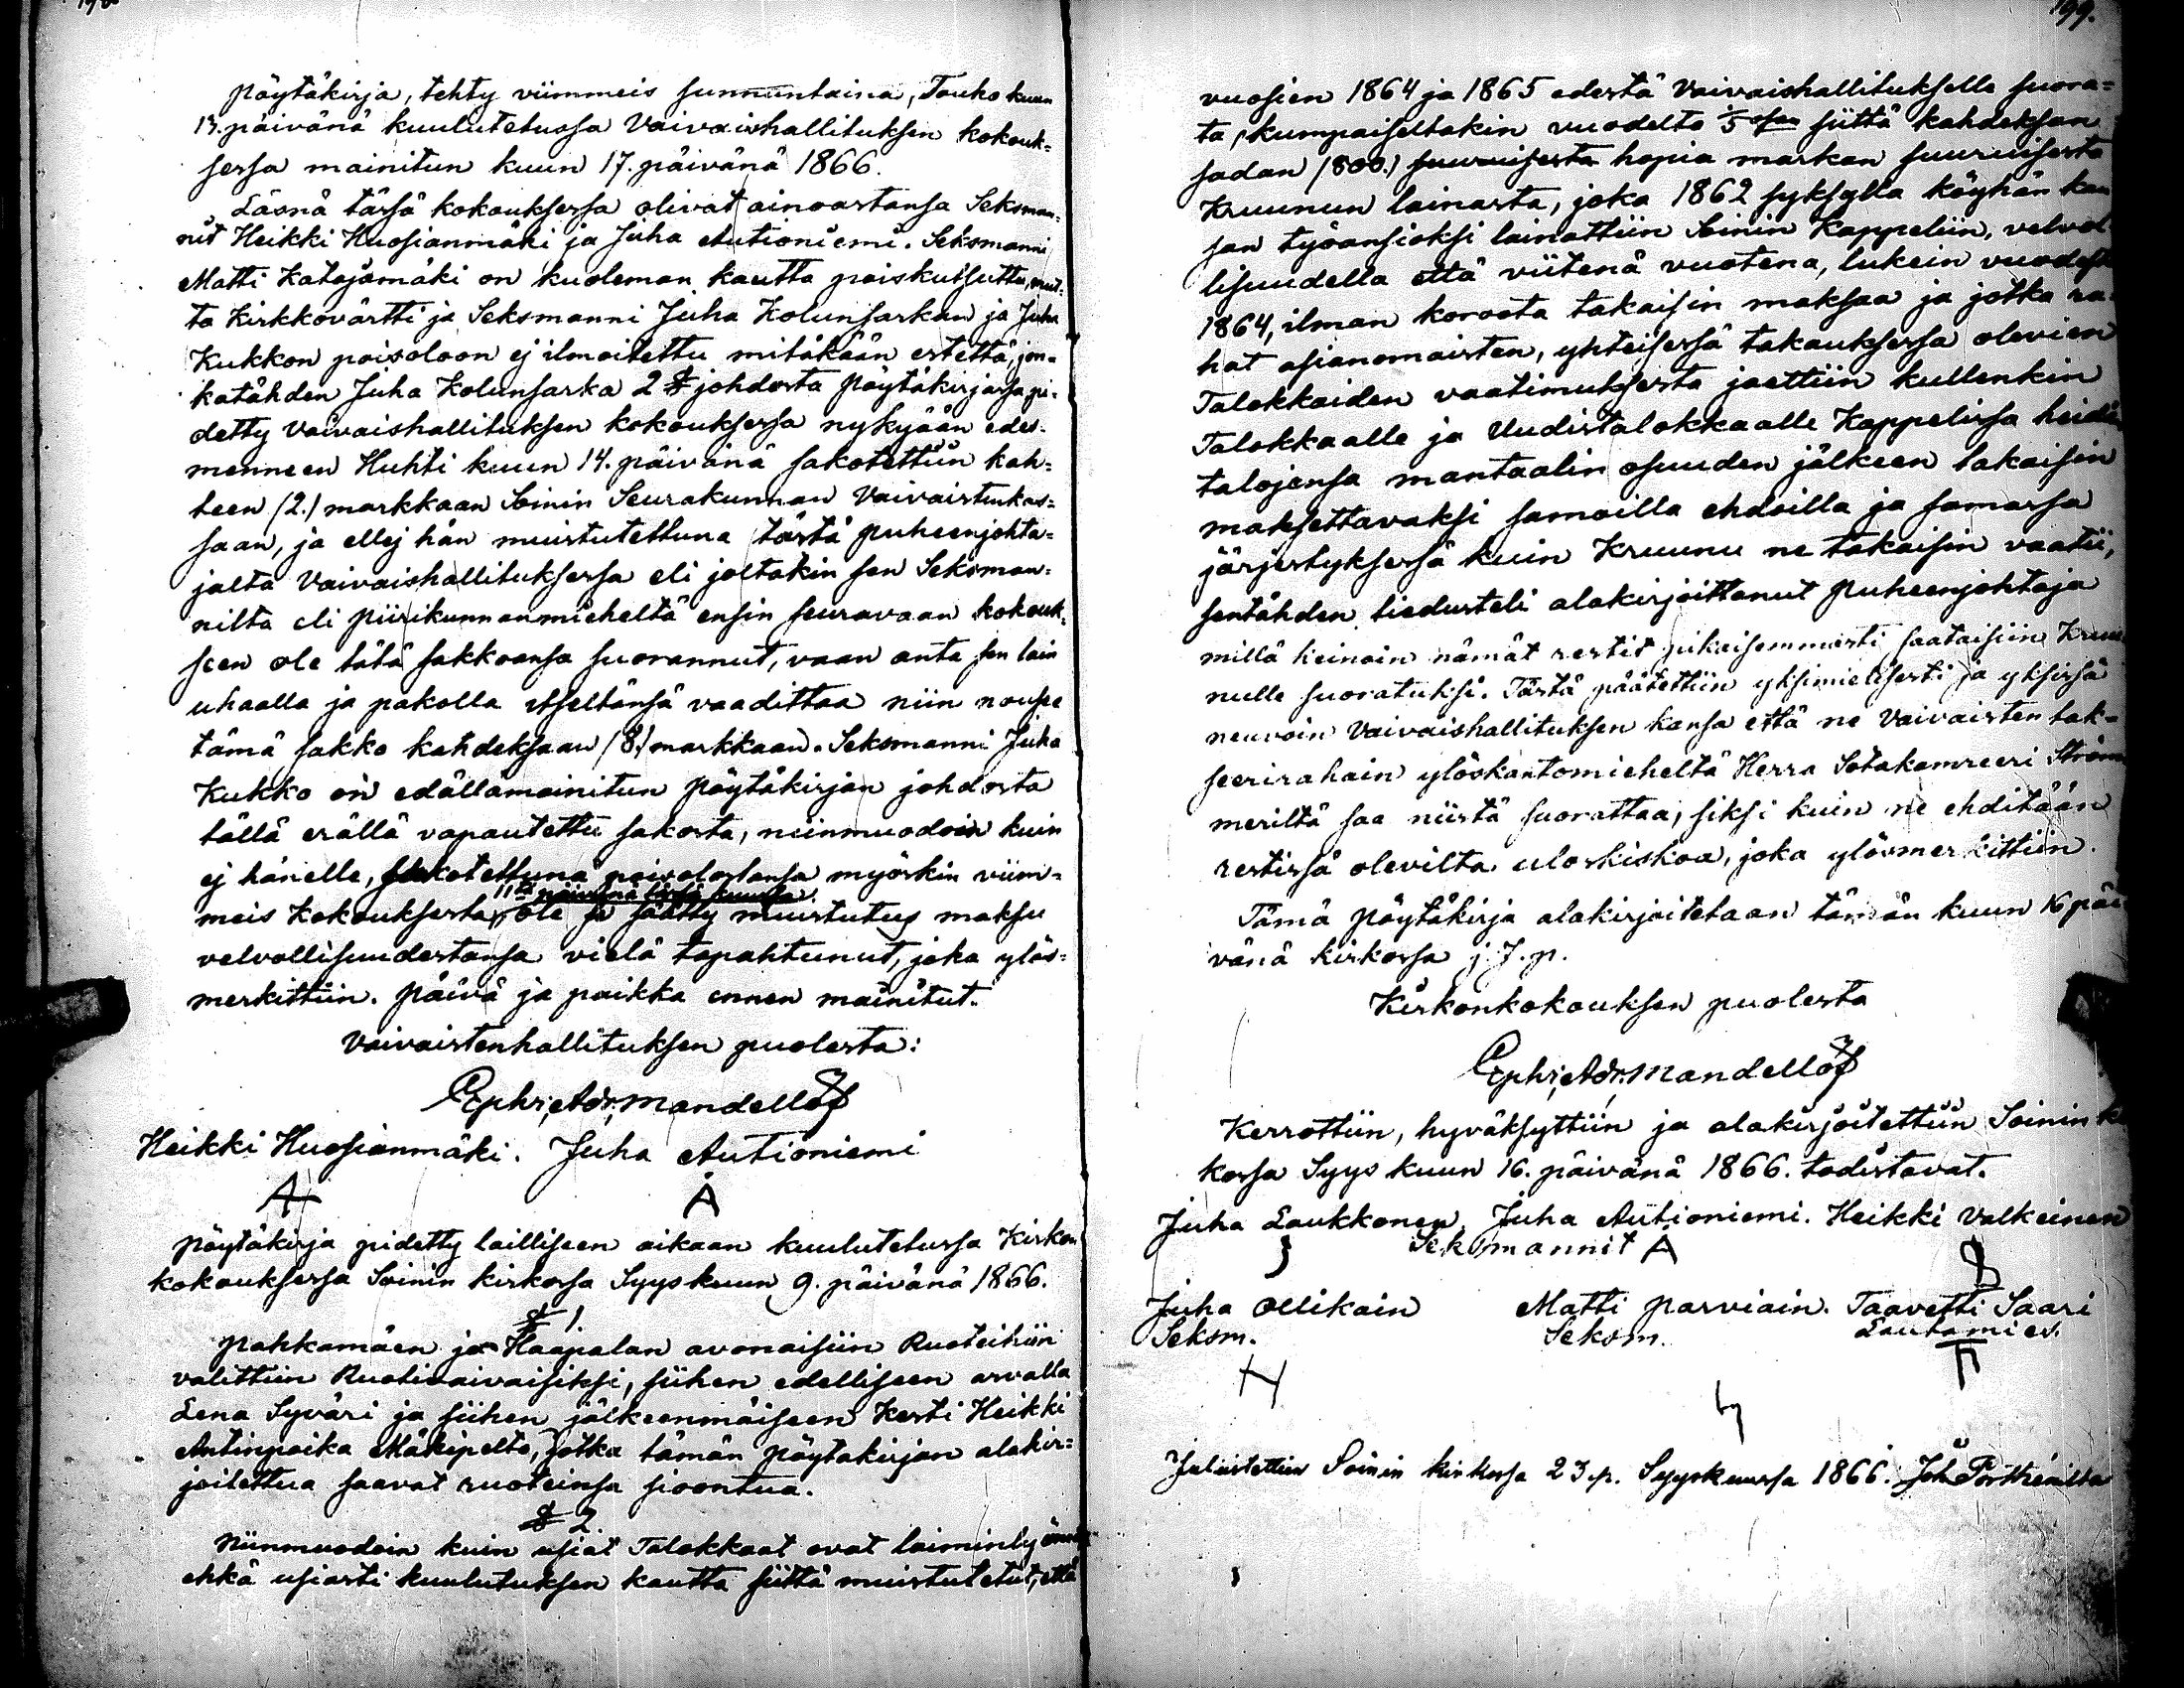 Pöytäkirja, tehty viimmeis sunnuntaina, Touko kuun
13. päivänä kuulutetussa Vaivaishallituksen kokouk-
sessa mainitun kuun 17. päivänä 1866.
Läsnä tässä kokouksessa olivat ainoastansa Seksman-
nit Heikki Huosianmäki ja Juha Autioniemi. Seksmanni
Matti Katajamäki on kuoleman kautta poiskutsuttu, mut-
ta Kirkkovärtti ja Seksmanni Juha Kolunsarkan ja Juha
Kukkon poisoloon ej ilmoitettu mitäkään estettä, jon-
katähden Juha Kolunsarka 2 § johdosta Pöytäkirjassa pi-
detty Vaivaishallituksen kokouksessa nykyään edes-
menneen Huhti kuun 14. päivänä sakotettiin kah-
teen (2.) markkaan Soinin Seurakunnan Vaivaistenkas-
saan, ja ellej hän muistutettuna tästä Puheenjohta-
jalta Vaivaishallituksessa eli joltakin sen Seksman-
nilta eli Piirikunnanmieheltä ensin seuravaan kokouk-
seen ole tätä sakkoansa suorannut, vaan anta sen lain
uhaalla ja pakolla itseltänsä vaadittaa niin nousee
tämä sakko kahdeksaan (8.) markkaan. Seksmanni Juha
Kukko on edällämainitun Pöytäkirjan johdosta
tällä erällä vapautettu sakosta, niinmuodoin kuin
ej hänelle, sakotettuna poisolostansa myöskin viim-
11tä päivänä tässä kuussa
meis Kokouksesta, ole se säätty muistutus maksu
velvollisuudestansa vielä tapahtunut, joka ylös-
merkittiin. Päivä ja paikka ennen mainitut.
Vaivaistenhallituksen puolesta:
Ephr. Adr. Mandellöf
Heikki Huosianmäki. Juha Autioniemi
Pöytäkirja pidetty lailliseen aikaan kuulutetussa Kirkon
kokouksessa Soinin kirkossa Syyskuun 9. päivänä 1866.
§ 1
Pahkamäen ja Haapalan avonaisiin Ruoteihiin
valittiin Ruotivaivaisiksi, siihen edelliseen arvalla
Lena Syväri ja siihen jälkeenmäiseen Kesti Heikki
Antinpoika Mäkipelto, jotka tämän Pöytäkirjan alakir-
joitettua saavat ruoteinsa sioontua.
§ 2
Niinmuodoin kuin usiat Talokkaat ovat laiminlyönet
ehkä usiasti kuulutuksen kautta siittä muistutetut, että
199.
vuosien 1864 ja 1865 edestä Vaivaishallitukselle suora-
ta, kumpaiseltakin vuodelta 1/5 osan siittä kahdeksan
sadan (800.) suuruisesta hopia markan suuruisesta
Kruunun lainasta, joka 1862 syksyllä köyhän kan
san työansioksi lainattiin Soinin Kappeliin, velvol
lisuudella että viitenä vuotena, lukein vuodesta
1864, ilman korosta takaisin maksaa ja jotka ra-
hat asianomaisten, yhteisessä takauksessa olevien
Talokkaiden vaatimuksesta jaettiin kullenkin
Talokkaalle ja Uudistalokkaalle Kappelissa heidän
talojensa mantaalin osuuden jälkeen takaisin
maksettavaksi samoilla ehdoilla ja samassa
järjestyksessä kuin Kruunu ne takaisin vaatii,
sentähden tiedusteli alakirjoittanut Puheenjohtaja
millä keinoin nämät restit pikaisemmasti saataisiin Kruu
nulle suoratuksi. Tästä päätettiin yksimielisesti ja yksissä
neuvoin Vaivaishallituksen kansa että ne Vaivaisten tak-
seerirahain ylöskantomieheltä Herra Sotakamreeri Ström
meriltä saa niistä suorattaa, siksi kuin ne ehditään
restissä olevilta uloskiskoa, joka ylösmerkittiin.
Tämä Pöytäkirja alakirjoitetaan tämän kuun 16 päi
vänä kirkossa j. J. p.
Kirkonkokouksen puolesta
Ephr. Adr. Mandellöf
Kerrottiin, hyväksyttiin ja alakirjoitettiin Soinin ki
kossa Syys kuun 16. päivänä 1866. todistavat.
Juha Laukkonen. Juha Autioniemi. Heikki Valkeinen
Seksmannit
Juha Ollikain Matti Parviain. Taavetti Saari
Seksm. Seksm. Lautamies.
Julistettiin Soinin kirkossa 23 p. Syyskuussa 1866.